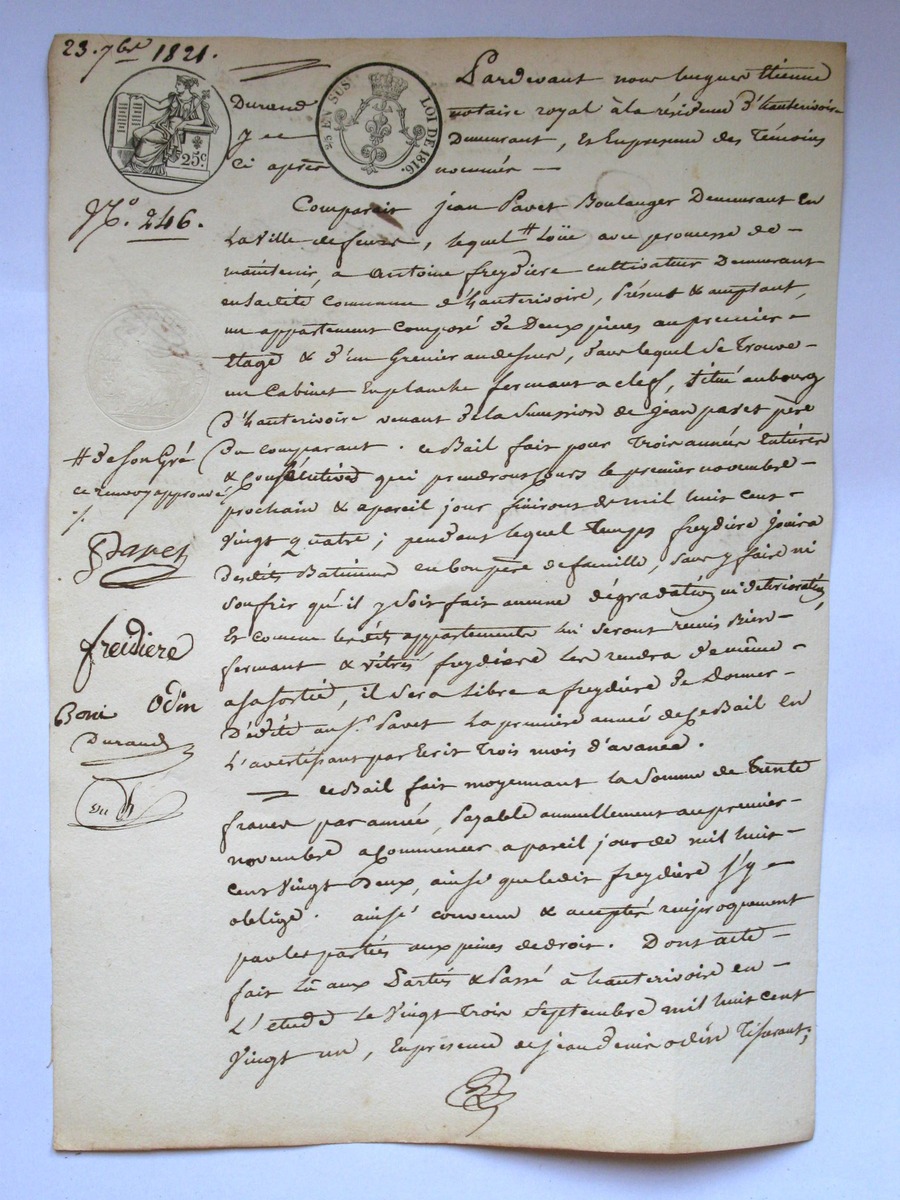 23. 7bre 1821.
Pardevant nous hugues Etienne
Durand notaire royal à la résidence d'hauterivoire
y Demeurant, Et En presence des Témoins
Ci après nommés —
25c.
25 EN SUS
LOI DE 1816.
No. 246.
Comparait jean Pavet Boulanger Demeurant En
La Ville de feurs, lequel # Loüe avec promesse de
maintenir, a Antoine freydiere cultivateur Demeurant
en la dite Commune d'hauterivoire, Présent & acceptant,
un appartement Composé de Deux pieces au premier
Etage & d'un Grenier au dessus, dans lequel se trouve
un Cabinet En planche fermant a clef, situé au bourg
d'hauterivoire venant de la Succession de jean pavet père
Du comparant. Ce Bail fait pour Trois année Entières
& Consécutives qui prendront Cours le premier novembre
prochain & a pareil jour finiront de mil huit cent
Vingt quatre; pendant lequel Temps freydière jouira
Desdits Batimens en bon père de famille, sans y faire ni
soufrir qu'il y soit fait aucune dégradation, ni déterioration,
Et comme lesdits appartements lui seront remis Bien
fermant & vitrés freydière les rendra de même
a sa sortie, il sera Libre a freydière de Donner
Dédite au sr. Pavet La première année de ce Bail en
L'avertissant par Ecrit Trois mois d'avance.
— Ce Bail fait moyennant la Somme de Trente
francs par année, Payable annuellement au premier
novembre a Commencer a pareil jour de mil huit
cent Vingt Deux, ainsi que ledit freydière s'y
oblige. ainsi convenu & accepté reciproquement
par les parties aux peines de droit. Dont acte
fait Lû aux Parties & Passé à hauterivoire en
L'étude Le Vingt Trois Septembre mil huit cent
Vingt un, En présence de jean Denis odin Tisserant,
# de son Gré
ce renvoy approuvé
Pavet
freidiere
Boni Odin
Durand